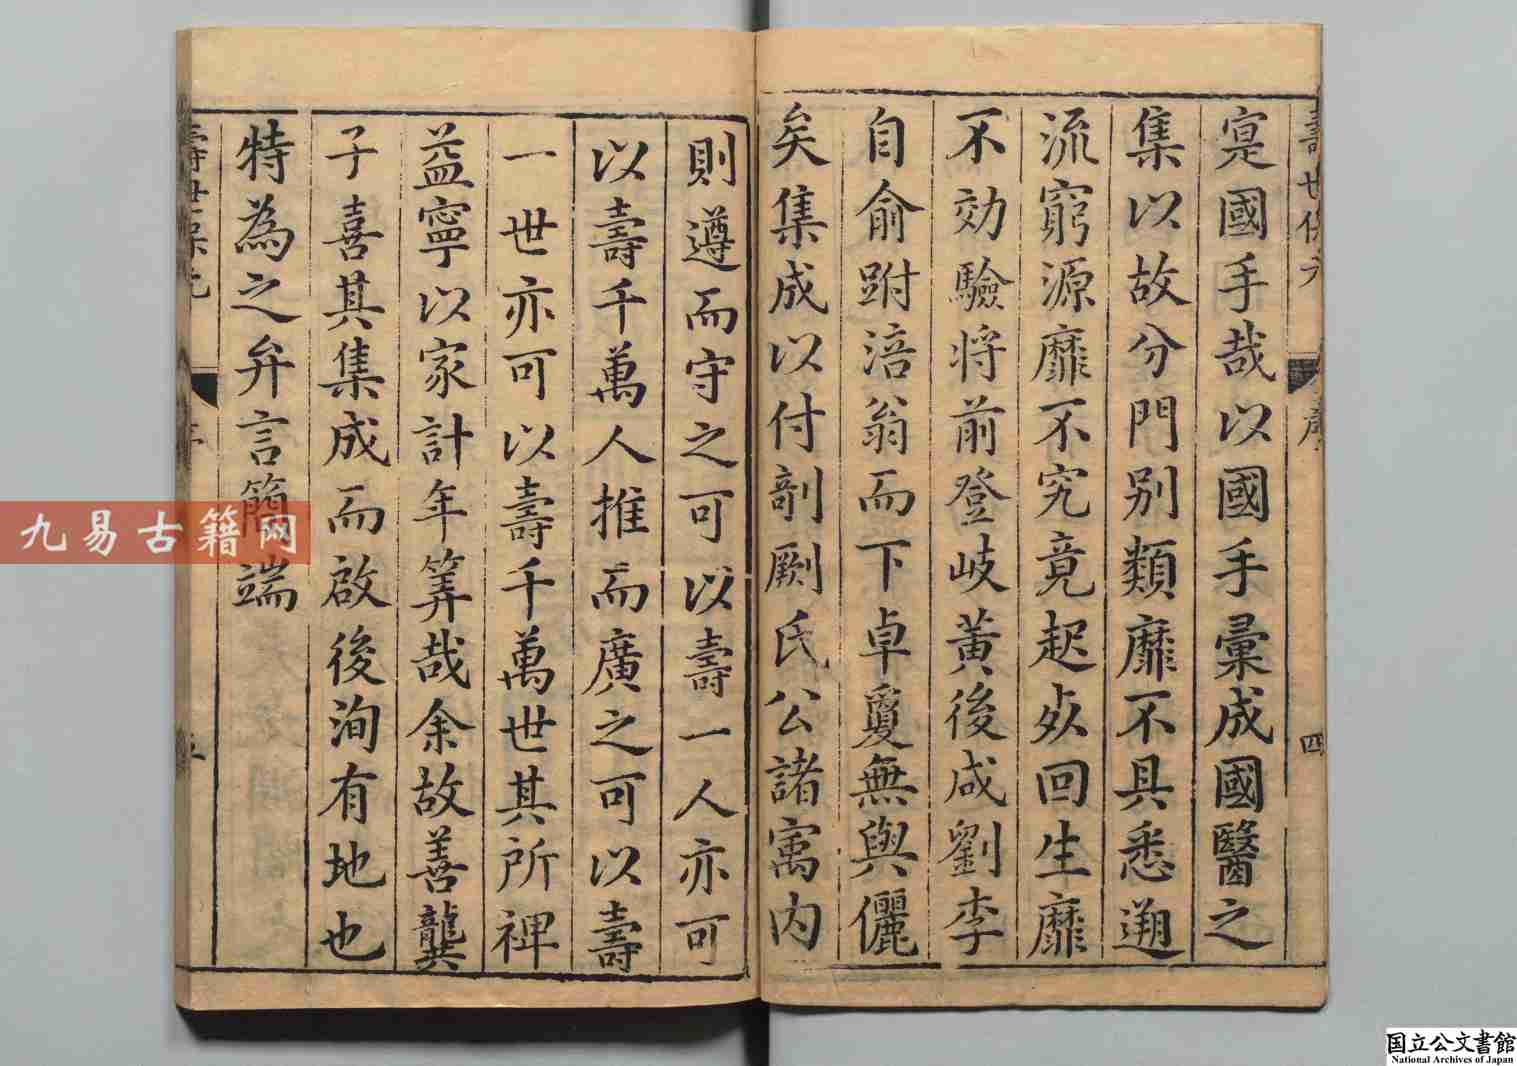 壽世保元
序
四
寔國手哉以國手彙成國醫之
集以故分門別類靡不具悉遡
流窮源靡不究竟起夶回生靡
不効驗將前登岐黃後咸劉李
自俞跗涪翁而下卓敻無與儷
矣集成以付剞劂氏公諸寓内
則遵而守之可以壽一人亦可
以壽千萬人推而廣之可以壽
一世亦可以壽千萬世其所裨
益寧以家計年筭哉余故善龔
子喜其集成而啟後洵有地也
特為之弁言簡端
九易古籍网
国立公文書館
National Archives of Japan